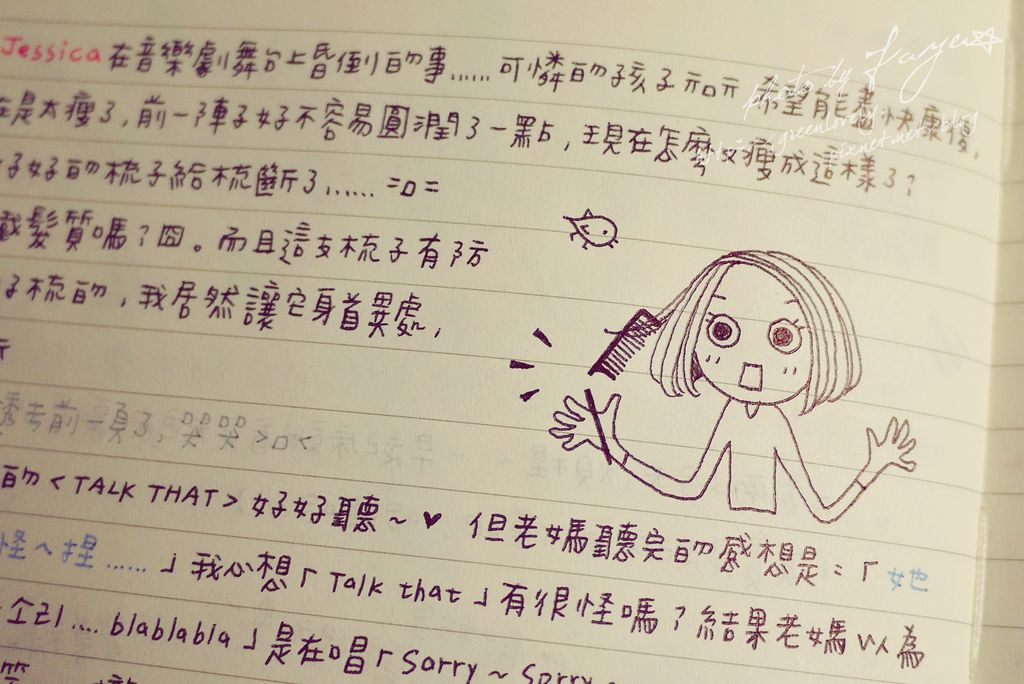 Jessica在音樂劇舞台上昏倒的事......可憐的孩子ㅠㅁㅠ 希望能盡快康復,
在是太瘦了,前一陣子好不容易圓潤了一點,現在怎麼又瘦成這樣了?
好好的梳子給梳斷了...... =口=
髮質嗎?囧。而且這支梳子有防
子梳的,我居然讓它身首異處,
透去前一頁了,哭哭>口<
的<TALK THAT>好好聽~♥ 但老媽聽完的感想是:「她
怪ㄟ捏......」我心想「Talk that」有很怪嗎?結果老媽以為
소리.... blablabla」是在唱「Sorry~Sorry~
photo by Faye☆
greenlove
pixnet.net/blog